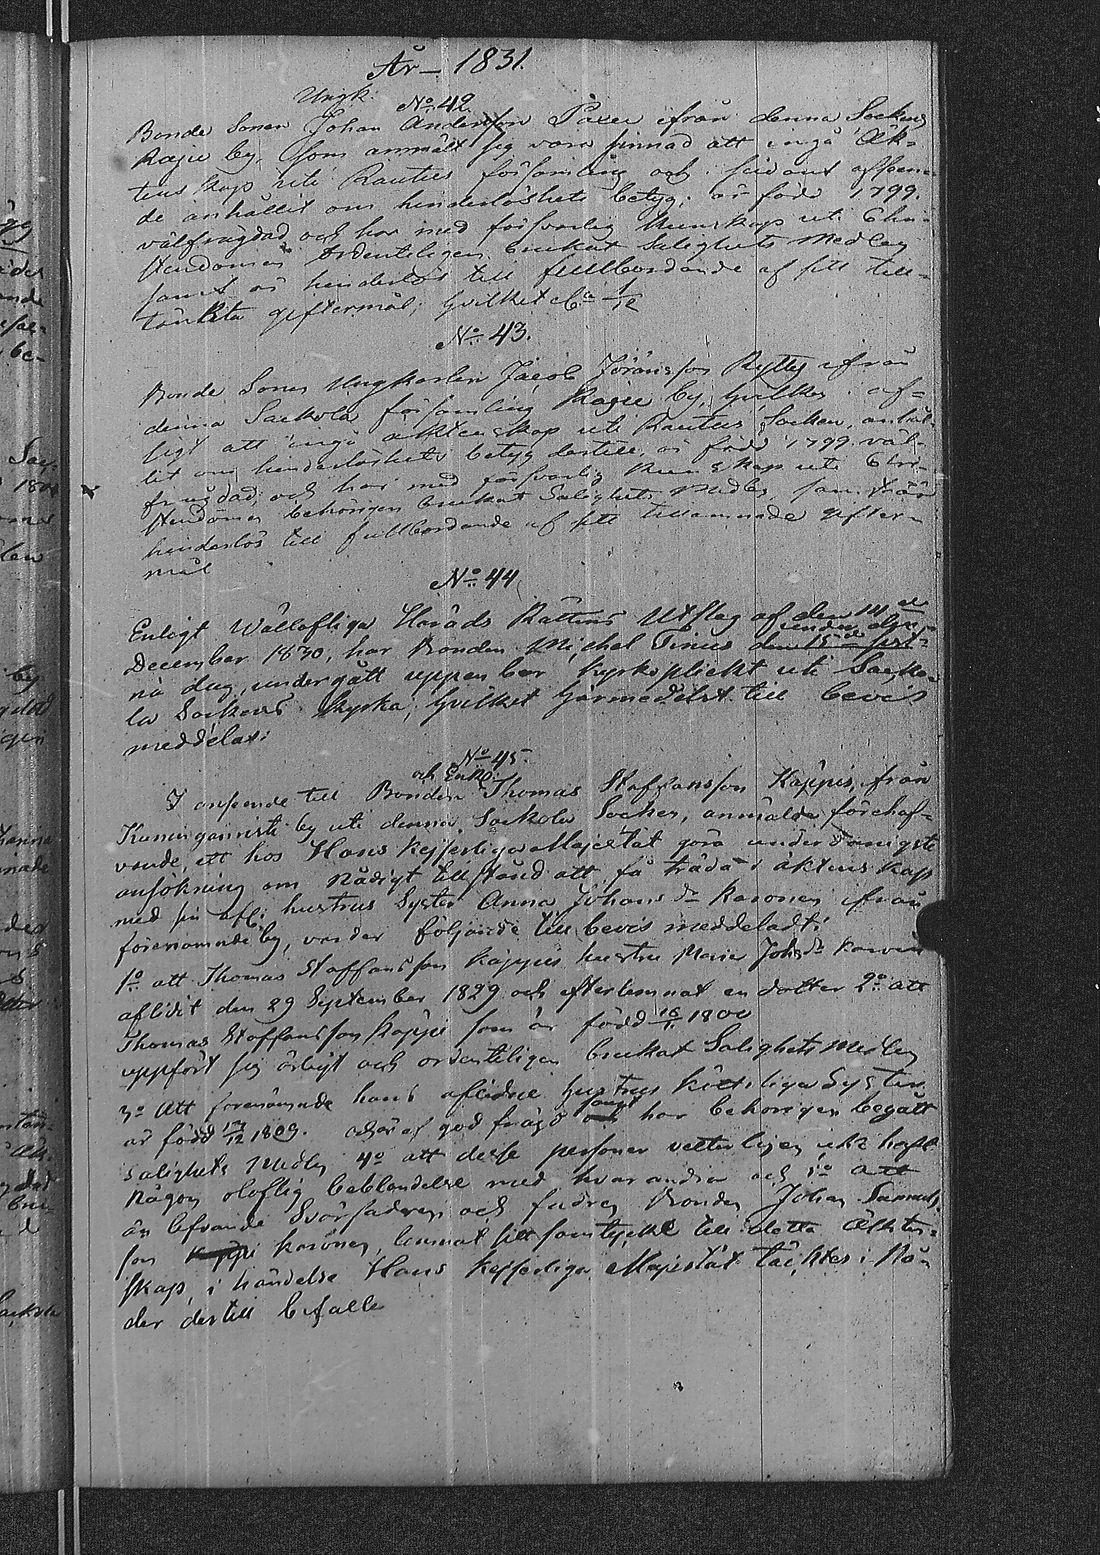 År 1831.
Ungk. No 42.
Bonde Sonen Johan Andersson Paxu ifrån denna Sockens
Raju by, som anmält sig vara sinnad att ingå Äk-
tenskap uti Rautus församling och
de anhållit om hinderlöshets betyg; är född 1799.
välfrägdad och har med försvarlig kunskap uti Chri-
stendomen ordenteligen brukat Salighets Medlen
samt är hinderlös till fullbordande af sitt till-
tänkta giftermål; hvilket
No 43.
Bonde Sonen Ungkarlen Jacob Jöransson Ryttÿ ifrån
denna Sackola församling Raju by, hvilken af-
sigt att ingå äktenskap uti Rautus Socken, anhål-
lit om hinderlöshets betyg dertill, är född 1799. väl-
frägdad, och har med försvarlig kunskap uti Chri-
stendomen behörigen brukat Salighets Medlen, samt är
hinderlös till fullbordande af sitt tillämnade gifter-
mål
No 44
Enligt Wällofliga Härads Rättens Utslag af den 14de
December 1830, har Bonden Michel Tirus
na dag, undergått uppenbar kyrkoplickt uti Sacko-
la Sockens kyrka; hvilket härmedelst till bevis
meddelas:
No 45.
och Enkl.
I anseende till Bonden Thomas Staffansson Käppis, från
Kuninganristi by uti denna Sackola Socken, anmälda förehaf-
vande, att hos Hans Kejserliga Majestät göra underdånigste
ansökning om Nådigt tillstånd att få träda i äktenskap
med sin afl: hustrus Syster Anna Johans dr Karonen ifrån
förenämnde by, varder följande till bevis meddeladt:
1o att Thomas Staffansson Käppis hustru Maria Johsdr Karonen
aflidit den 29 September 1829 och efterlemnat en dotter 2o att
Thomas Staffansson Käppi som är född 1800
uppfört sig ärligt och ordenteligen brukat Salighets Medlen
3o Att förenämnde hans aflidne hustrus köttsliga Syster
är född 1809. och är af god frägd samt har behörigen begått
Salighets Medlen 4o att desse personer vetterligen icke haft
någon oloflig beblandelse med hvarandra och 5o att
än lefvande Svärfadren och fadren Bonden Johan Samuels-
son Karonen, lemnat sitt samtycke till detta äkten-
skap, i händelse Hans Kejserliga Majestät täcktes i Nå-
der dertill befalla